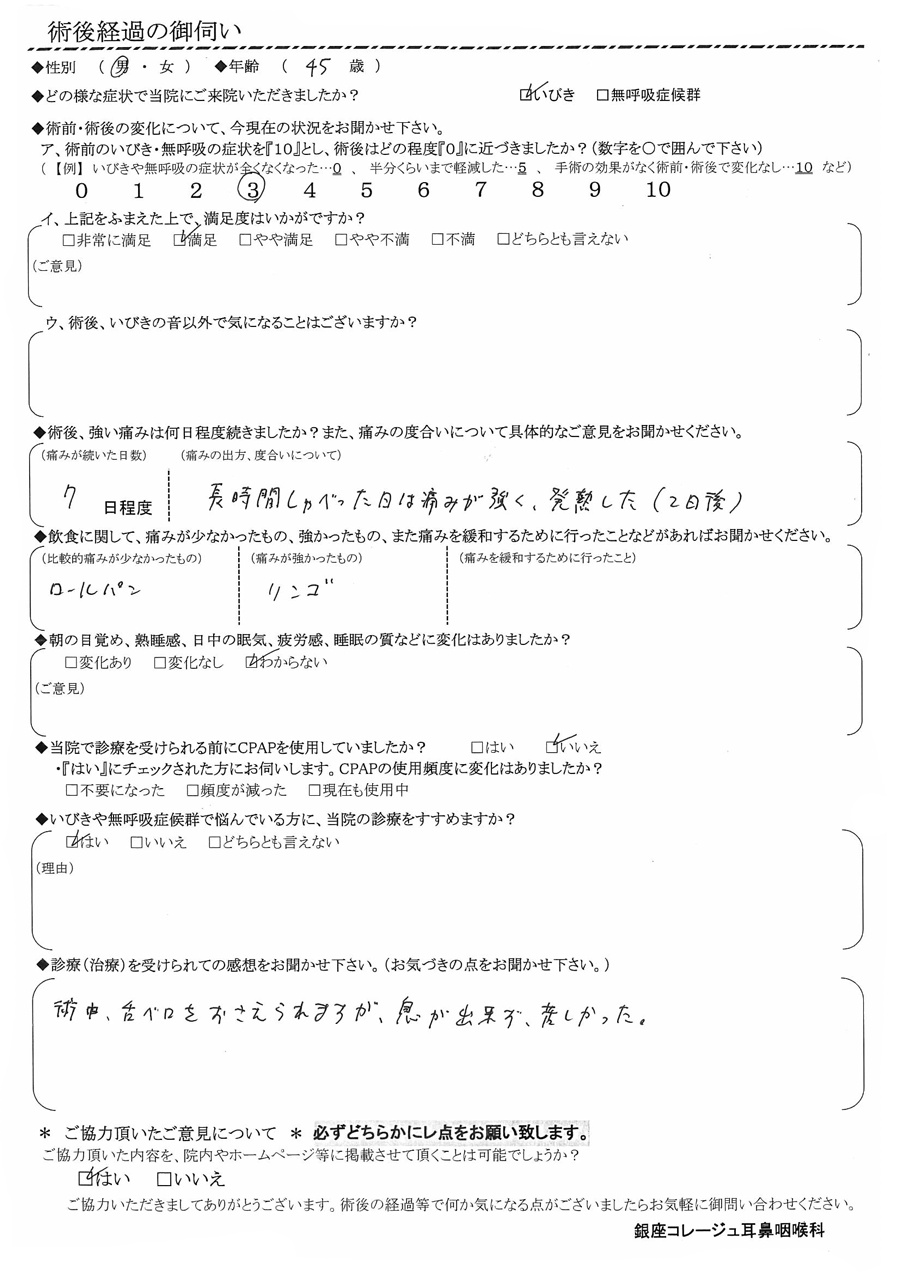 術後経過の御伺い
◆性別 ( 男 ・ 女 ) ◆年齢 ( 45 歳 )
◆どの様な症状で当院にご来院いただきましたか? ☑いびき □無呼吸症候群
◆術前・術後の変化について、今現在の状況をお聞かせ下さい。
ア、術前のいびき・無呼吸の症状を『10』とし、術後はどの程度『0』に近づきましたか?(数字を〇で囲んで下さい)
(【例】いびきや無呼吸の症状が全くなくなった…0 、 半分くらいまで軽減した…5 、 手術の効果がなく術前・術後で変化なし…10 など)
0 1 2 3 4 5 6 7 8 9 10
イ、上記をふまえた上で、満足度はいかがですか?
□非常に満足 ☑満足 □やや満足 □やや不満 □不満 □どちらとも言えない
(ご意見)
ウ、術後、いびきの音以外で気になることはございますか?
◆術後、強い痛みは何日程度続きましたか?また、痛みの度合いについて具体的なご意見をお聞かせください。
(痛みが続いた日数) (痛みの出方、度合いについて)
7 日程度 長時間しゃべった日は痛みが強く、発熱した(2日後)
◆飲食に関して、痛みが少なかったもの、強かったもの、また痛みを緩和するために行ったことなどがあればお聞かせください。
(比較的痛みが少なかったもの) (痛みが強かったもの) (痛みを緩和するために行ったこと)
ロールパン リンゴ
◆朝の目覚め、熟睡感、日中の眠気、疲労感、睡眠の質などに変化はありましたか?
□変化あり □変化なし ☑わからない
(ご意見)
◆当院で診療を受けられる前にCPAPを使用していましたか? □はい ☑いいえ
・『はい』にチェックされた方にお伺いします。CPAPの使用頻度に変化はありましたか?
□不要になった □頻度が減った □現在も使用中
◆いびきや無呼吸症候群で悩んでいる方に、当院の診療をすすめますか?
☑はい □いいえ □どちらとも言えない
(理由)
◆診療(治療)を受けられての感想をお聞かせ下さい。(お気づきの点をお聞かせ下さい。)
術中、舌ベロをおさえられますが、息が出来ず、苦しかった。
* ご協力頂いたご意見について * 必ずどちらかにレ点をお願い致します。
ご協力頂いた内容を、院内やホームページ等に掲載させて頂くことは可能でしょうか?
☑はい □いいえ
ご協力いただきましてありがとうございます。術後の経過等で何か気になる点がございましたらお気軽に御問い合わせください。
銀座コレージュ耳鼻咽喉科